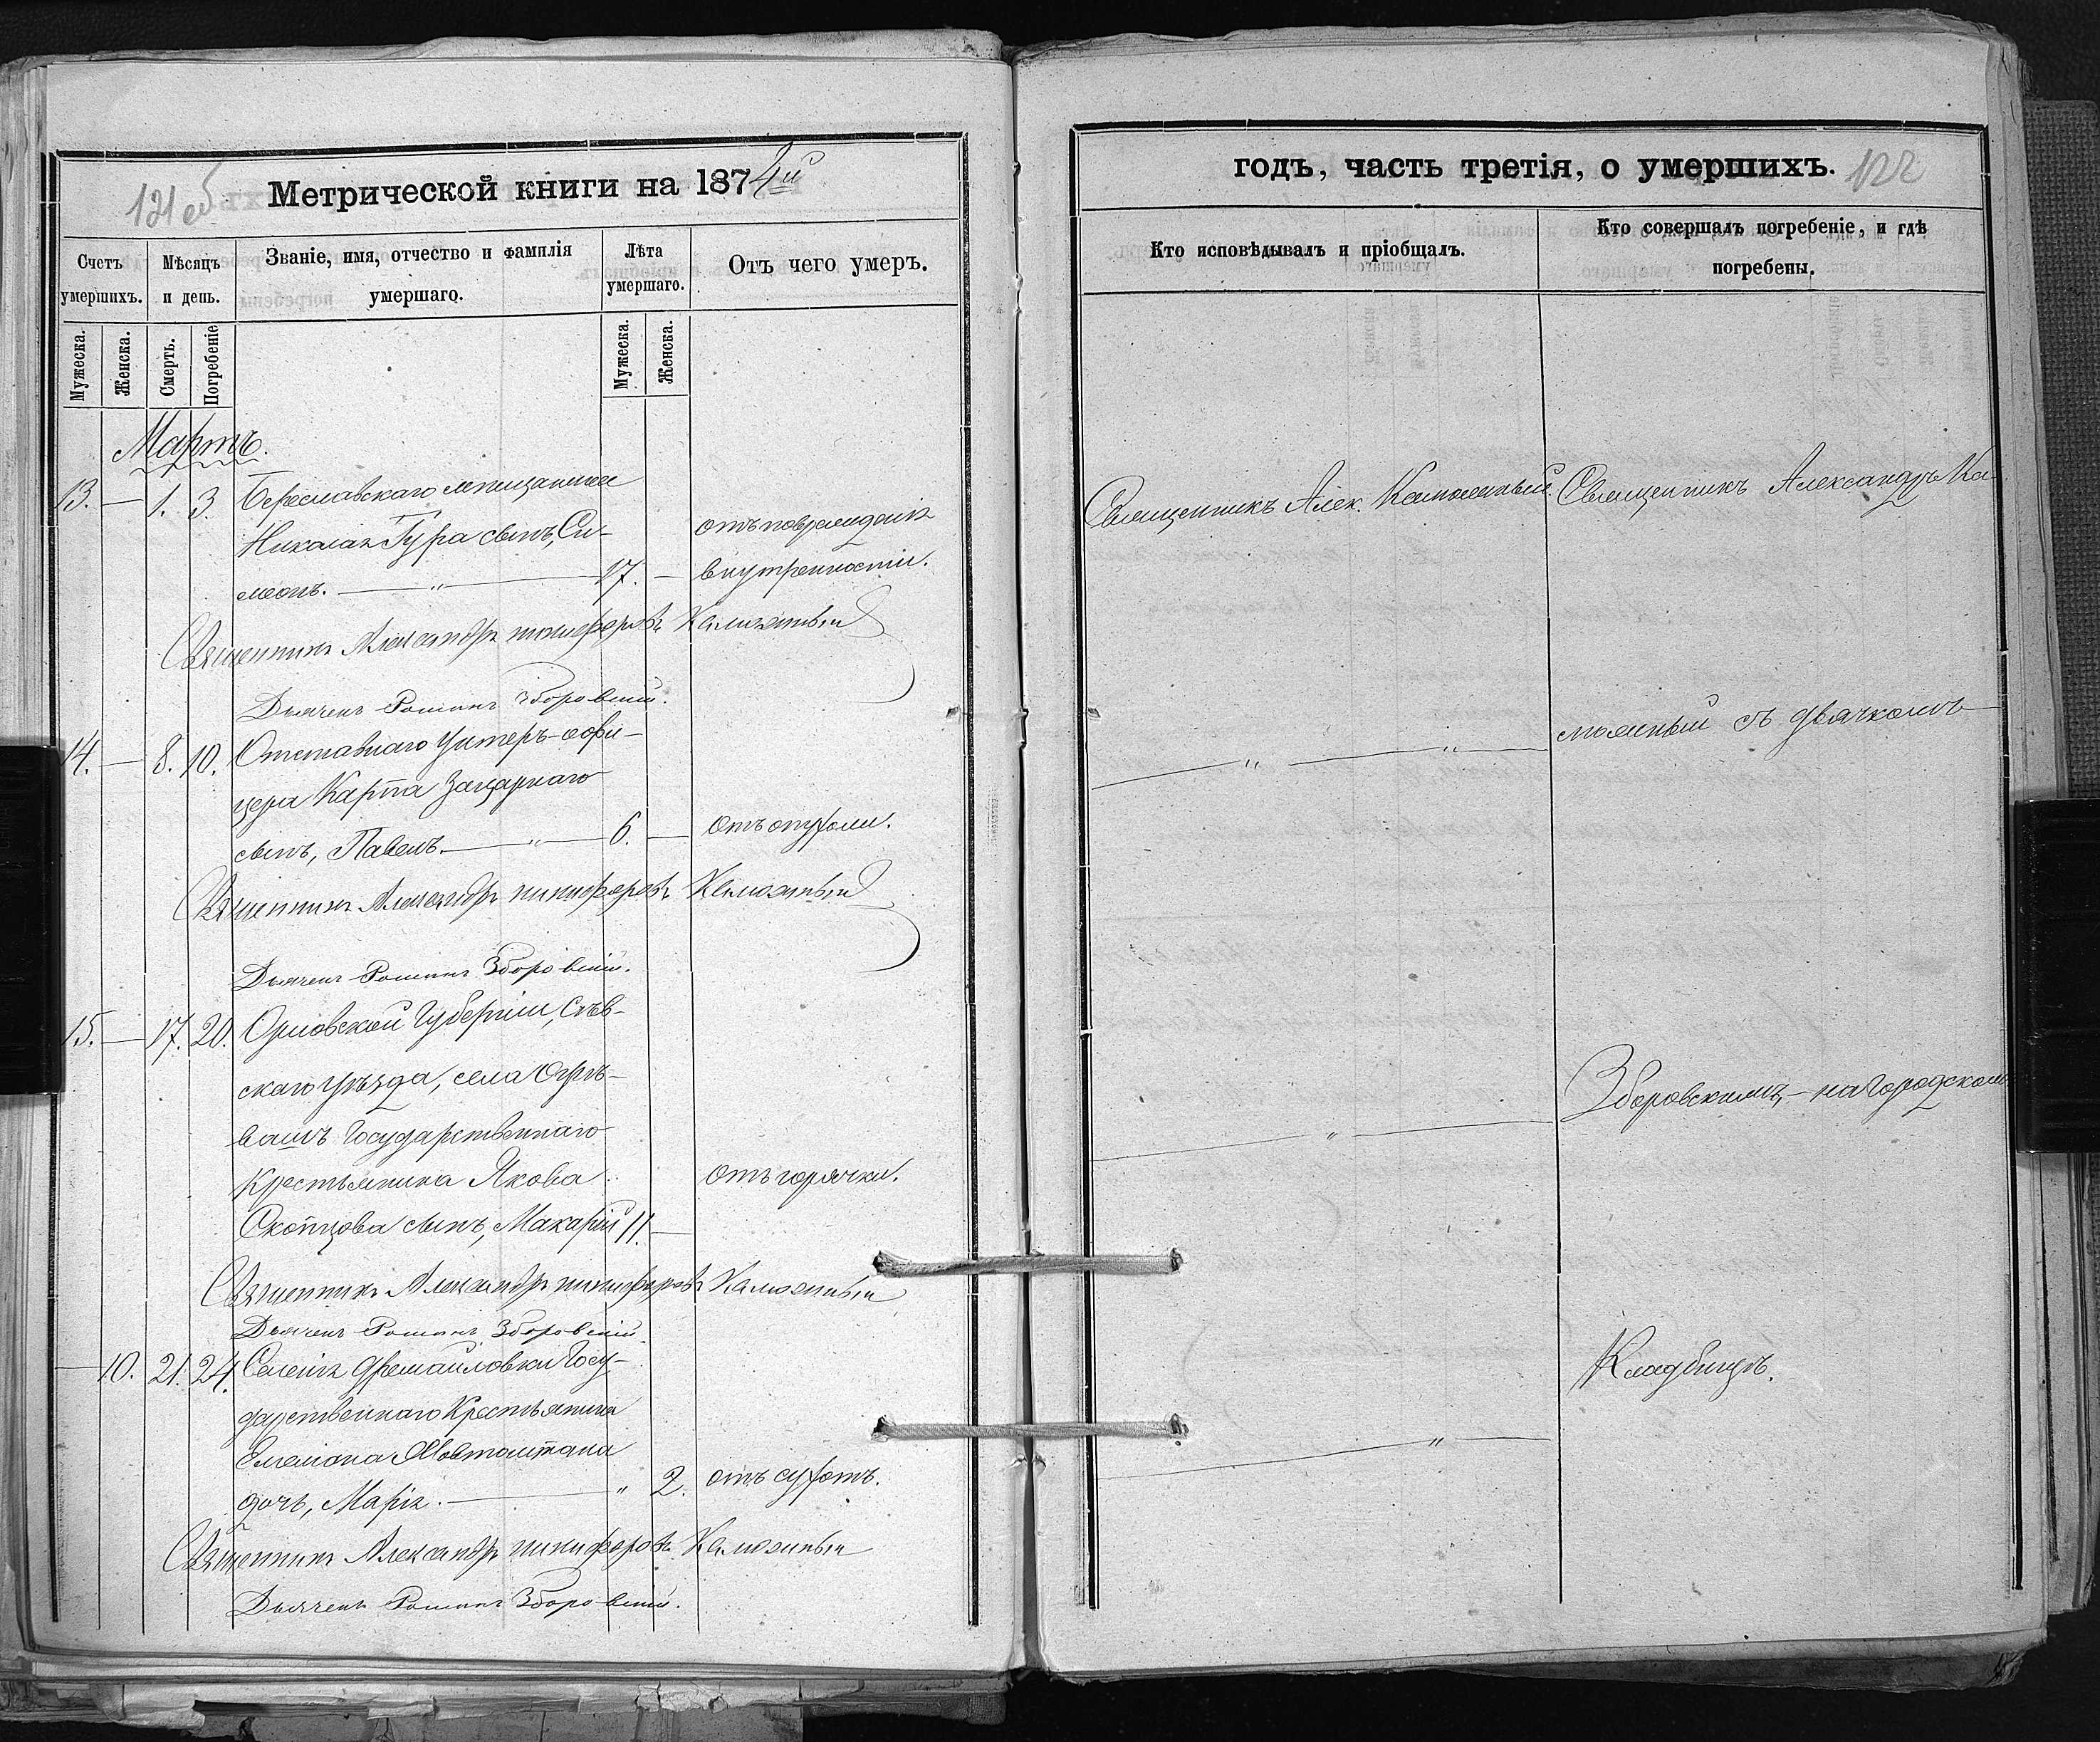 121об
Метрической книги на 1874й
Счетъ умершихъ.
Мѣсяцъ и день.
Званіе, имя, отчество и фамилія умершаго.
Лѣта умершаго.
Отъ чего умеръ.
Мужеска.
Женска.
Смерть.
Погребеніе
Мужеска.
Женска.
Мартъ.
13. — 1. 3. Бериславскаго мѣщанина
Николая Гура сынъ, Си-
меонъ. — " — 17. —
отъ поврежденія
внутренности.
Священникъ Александръ Никифоровъ Камоянный
Дьячекъ Романъ Зборовскій.
14. — 8. 10. Отставнаго Унтеръ-офи-
цера Карпа Зацарнаго
сынъ, Павелъ. — " — 6. — отъ опухоли.
Священникъ Александръ Никифоровъ Камоянный
Дьячекъ Романъ Зборовскій.
15. — 17. 20. Орловской Губерніи, Сѣв-
скаго уѣзда, села
Государственнаго
Крестьянина Якова
отъ горячки.
Скопцова сынъ, Макарій 11. —
Священникъ Александръ Никифоровъ Камоянный
Дьячекъ Романъ Зборовскій
— 10. 21. 24. Селенія Дремайловки Госу-
дарственнаго Крестьянина
Емеліана
дочь, Марія. — " 2. отъ сухотъ.
Священникъ Александръ Никифоровъ Камоянный
Дьячекъ Романъ Зборовскій.
годъ, часть третія, о умершихъ. 122
Кто исповѣдывалъ и пріобщалъ.
Кто совершалъ погребеніе, и гдѣ погребены.
Священникъ Алек. Камоянный.
Священникъ Александръ Ка-
— " — " —
моянный съ дьячкомъ
— " —
Зборовскимъ, — на Городскомъ
Кладбищѣ.
— " —